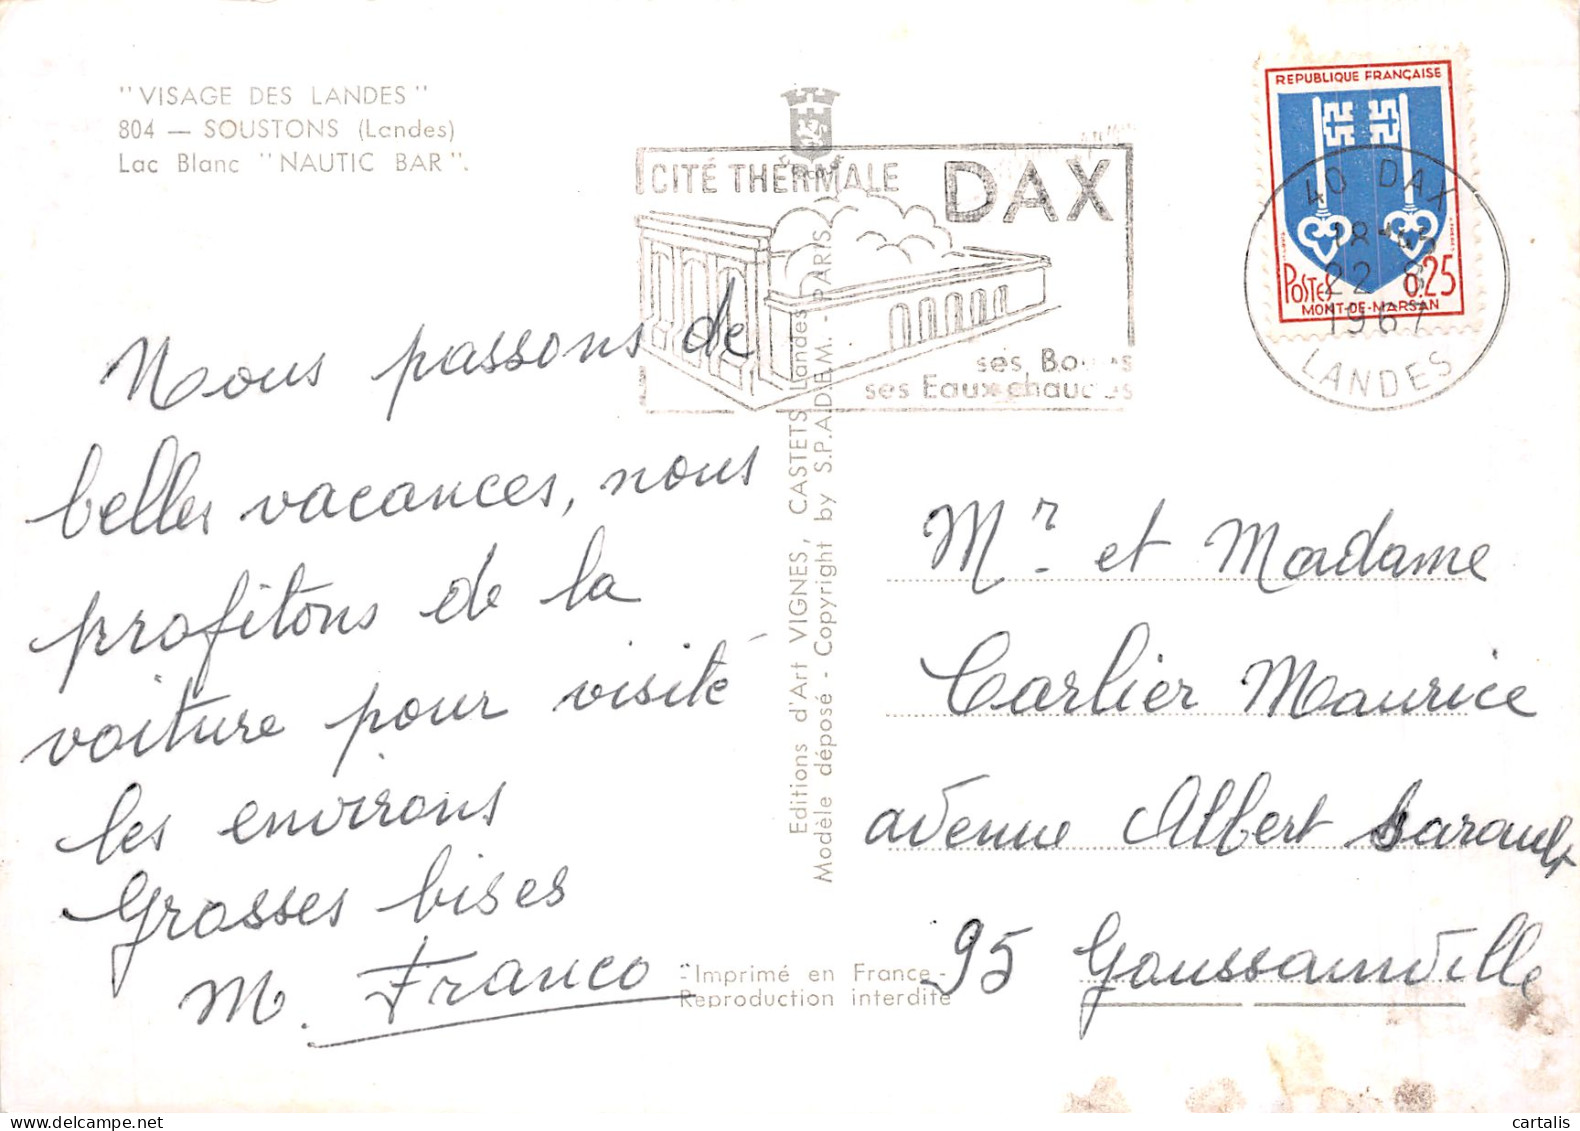 "VISAGE DES LANDES"
804 — SOUSTONS (Landes)
Lac Blanc "NAUTIC BAR".
CITÉ THERMALE DAX
ses Boues
ses Eaux chaudes
REPUBLIQUE FRANÇAISE
POSTES 0,25
MONT-DE-MARSAN
40 DAX
22 8
1967
LANDES
Nous passons de
belles vacances, nous
profitons de la
voiture pour visité
les environs
Grosses bises
M. Franco
Editions d'Art VIGNES, CASTETS Landes
Modèle déposé - Copyright by S.P.A.D.E.M. - PARIS
Imprimé en France -
Reproduction interdite
Mr. et Madame
Carlier Maurice
avenue Albert Sarault
95 Goussainville
cartalis.com